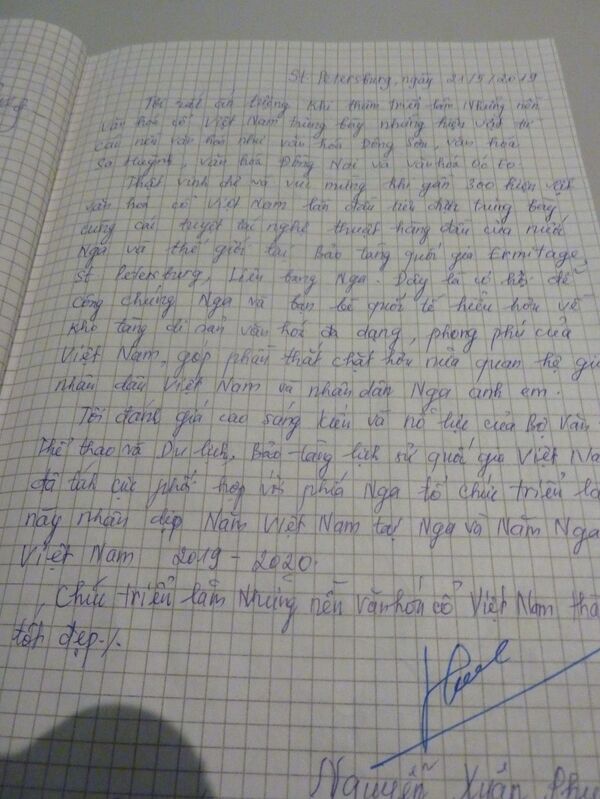 St. Petersburg, ngày 21/5/2019
Tôi rất ấn tượng khi thăm Triển lãm Những nền
văn hóa cổ Việt Nam trưng bày những hiện vật từ
các nền văn hóa như văn hóa Đông Sơn, văn hóa
Sa Huỳnh, văn hóa Đồng Nai và văn hóa Óc Eo.
Thật vinh dự và vui mừng khi gần 300 hiện vật
văn hóa cổ Việt Nam lần đầu tiên được trưng bày
cùng các tuyệt tác nghệ thuật hàng đầu của nước
Nga và thế giới tại Bảo tàng quốc gia Ermitage,
St. Petersburg, Liên bang Nga. Đây là cơ hội để
công chúng Nga và bạn bè quốc tế hiểu hơn về
kho tàng di sản văn hóa đa dạng, phong phú của
Việt Nam, góp phần thắt chặt hơn nữa quan hệ gi
nhân dân Việt Nam và nhân dân Nga anh em.
Tôi đánh giá cao sáng kiến và nỗ lực của Bộ Văn
Thể thao và Du lịch, Bảo tàng lịch sử quốc gia Việt Na
đã tích cực phối hợp với phía Nga tổ chức triển lã
này nhân dịp Năm Việt Nam tại Nga và Năm Nga
Việt Nam 2019 - 2020.
Chúc triển lãm Những nền văn hóa cổ Việt Nam thà
tốt đẹp./.
Nguyễn Xuân Phú